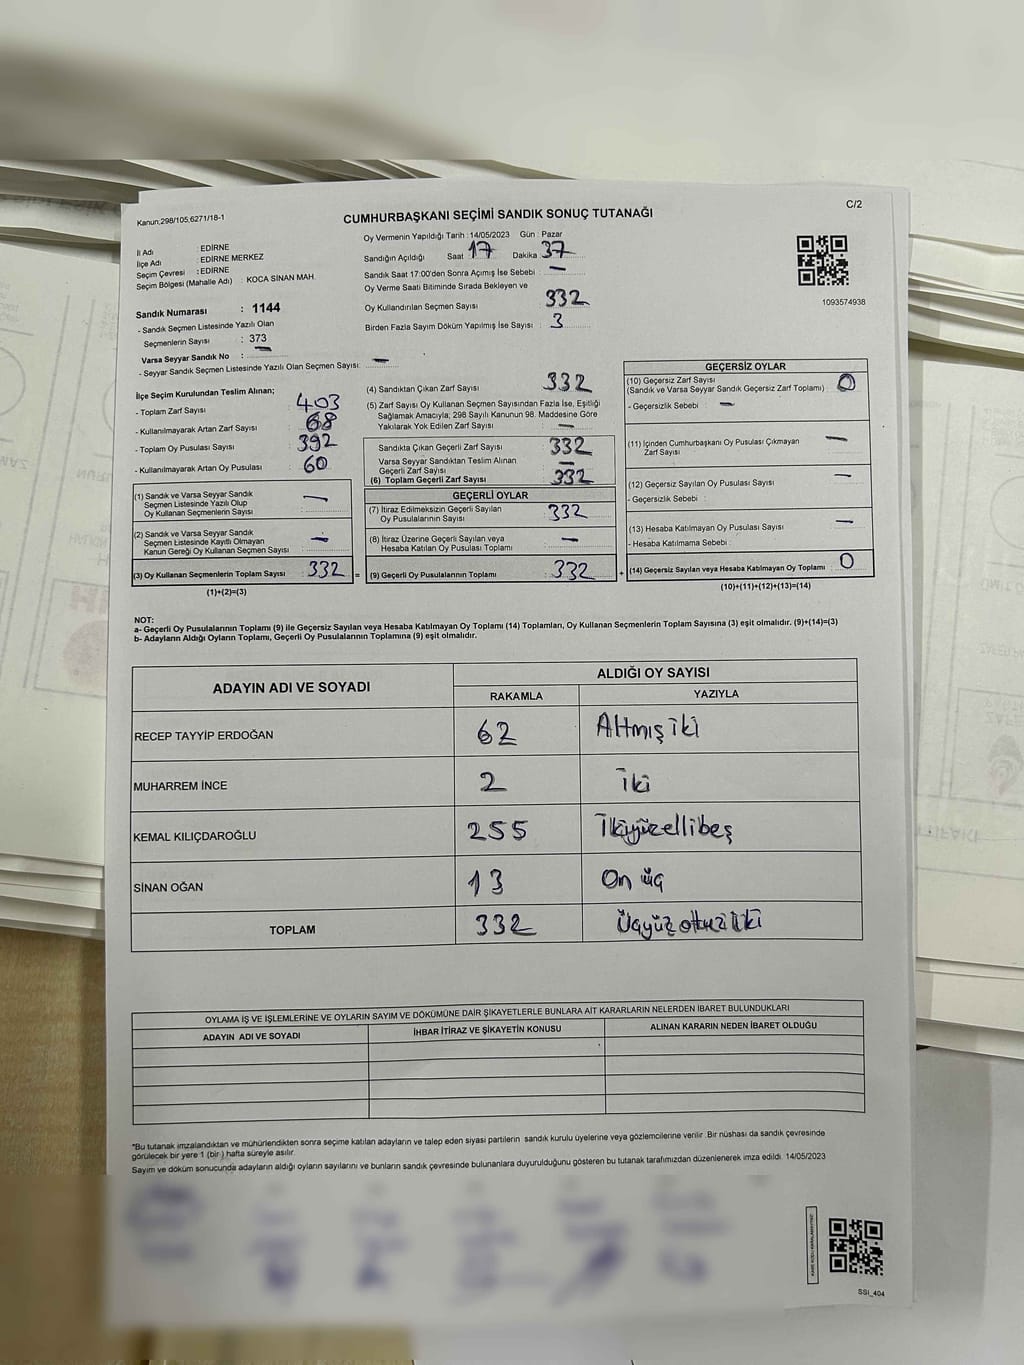 Kanun:298/105,6271/18-1
C/2
CUMHURBAŞKANI SEÇİMİ SANDIK SONUÇ TUTANAĞI
İl Adı : EDİRNE
İlçe Adı : EDİRNE MERKEZ
Seçim Çevresi : EDİRNE
Seçim Bölgesi (Mahalle Adı) : KOCA SİNAN MAH.
Sandık Numarası : 1144
- Sandık Seçmen Listesinde Yazılı Olan
Seçmenlerin Sayısı : 373
Varsa Seyyar Sandık No : —
- Seyyar Sandık Seçmen Listesinde Yazılı Olan Seçmen Sayısı: —
Oy Vermenin Yapıldığı Tarih : 14/05/2023 Gün : Pazar
Sandığın Açıldığı Saat 17 Dakika 37
Sandık Saat 17:00'den Sonra Açımış İse Sebebi : —
Oy Verme Saati Bitiminde Sırada Bekleyen ve
Oy Kullandırılan Seçmen Sayısı : 332
Birden Fazla Sayım Döküm Yapılmış İse Sayısı : 3
1093574938
İlçe Seçim Kurulundan Teslim Alınan;
- Toplam Zarf Sayısı : 403
- Kullanılmayarak Artan Zarf Sayısı : 68
- Toplam Oy Pusulası Sayısı : 392
- Kullanılmayarak Artan Oy Pusulası : 60
(1) Sandık ve Varsa Seyyar Sandık
Seçmen Listesinde Yazılı Olup
Oy Kullanan Seçmenlerin Sayısı : —
(2) Sandık ve Varsa Seyyar Sandık
Seçmen Listesinde Kayıtlı Olmayan
Kanun Gereği Oy Kullanan Seçmen Sayısı : —
(3) Oy Kullanan Seçmenlerin Toplam Sayısı : 332 =
(1)+(2)=(3)
(4) Sandıktan Çıkan Zarf Sayısı : 332
(5) Zarf Sayısı Oy Kullanan Seçmen Sayısından Fazla İse, Eşitliği
Sağlamak Amacıyla; 298 Sayılı Kanunun 98. Maddesine Göre
Yakılarak Yok Edilen Zarf Sayısı : —
Sandıkta Çıkan Geçerli Zarf Sayısı : 332
Varsa Seyyar Sandıktan Teslim Alınan
Geçerli Zarf Sayısı : —
(6) Toplam Geçerli Zarf Sayısı : 332
GEÇERLİ OYLAR
(7) İtiraz Edilmeksizin Geçerli Sayılan
Oy Pusulalarının Sayısı : 332
(8) İtiraz Üzerine Geçerli Sayılan veya
Hesaba Katılan Oy Pusulası Toplamı : —
(9) Geçerli Oy Pusulalarının Toplamı : 332 +
GEÇERSİZ OYLAR
(10) Geçersiz Zarf Sayısı
(Sandık ve Varsa Seyyar Sandık Geçersiz Zarf Toplamı) : 0
- Geçersizlik Sebebi : —
(11) İçinden Cumhurbaşkanı Oy Pusulası Çıkmayan
Zarf Sayısı : —
(12) Geçersiz Sayılan Oy Pusulası Sayısı : —
- Geçersizlik Sebebi :
(13) Hesaba Katılmayan Oy Pusulası Sayısı : —
- Hesaba Katılmama Sebebi :
(14) Geçersiz Sayılan veya Hesaba Katılmayan Oy Toplamı : 0
(10)+(11)+(12)+(13)=(14)
NOT:
a- Geçerli Oy Pusulalarının Toplamı (9) ile Geçersiz Sayılan veya Hesaba Katılmayan Oy Toplamı (14) Toplamları, Oy Kullanan Seçmenlerin Toplam Sayısına (3) eşit olmalıdır. (9)+(14)=(3)
b- Adayların Aldığı Oyların Toplamı, Geçerli Oy Pusulalarının Toplamına (9) eşit olmalıdır.
ADAYIN ADI VE SOYADI
ALDIĞI OY SAYISI
RAKAMLA YAZIYLA
RECEP TAYYİP ERDOĞAN 62 Altmış iki
MUHARREM İNCE 2 İki
KEMAL KILIÇDAROĞLU 255 İkiyüzellibeş
SİNAN OĞAN 13 On üç
TOPLAM 332 Üçyüz otuz iki
OYLAMA İŞ VE İŞLEMLERİNE VE OYLARIN SAYIM VE DÖKÜMÜNE DAİR ŞİKAYETLERLE BUNLARA AİT KARARLARIN NELERDEN İBARET BULUNDUKLARI
ADAYIN ADI VE SOYADI İHBAR İTİRAZ VE ŞİKAYETİN KONUSU ALINAN KARARIN NEDEN İBARET OLDUĞU
*Bu tutanak imzalandıktan ve mühürlendikten sonra seçime katılan adayların ve talep eden siyasi partilerin sandık kurulu üyelerine veya gözlemcilerine verilir. Bir nüshası da sandık çevresinde
görülecek bir yere 1 (bir) hafta süreyle asılır.
Sayım ve döküm sonucunda adayların aldığı oyların sayılarını ve bunların sandık çevresinde bulunanlara duyurulduğunu gösteren bu tutanak tarafımızdan düzenlenerek imza edildi. 14/05/2023
SSI_404